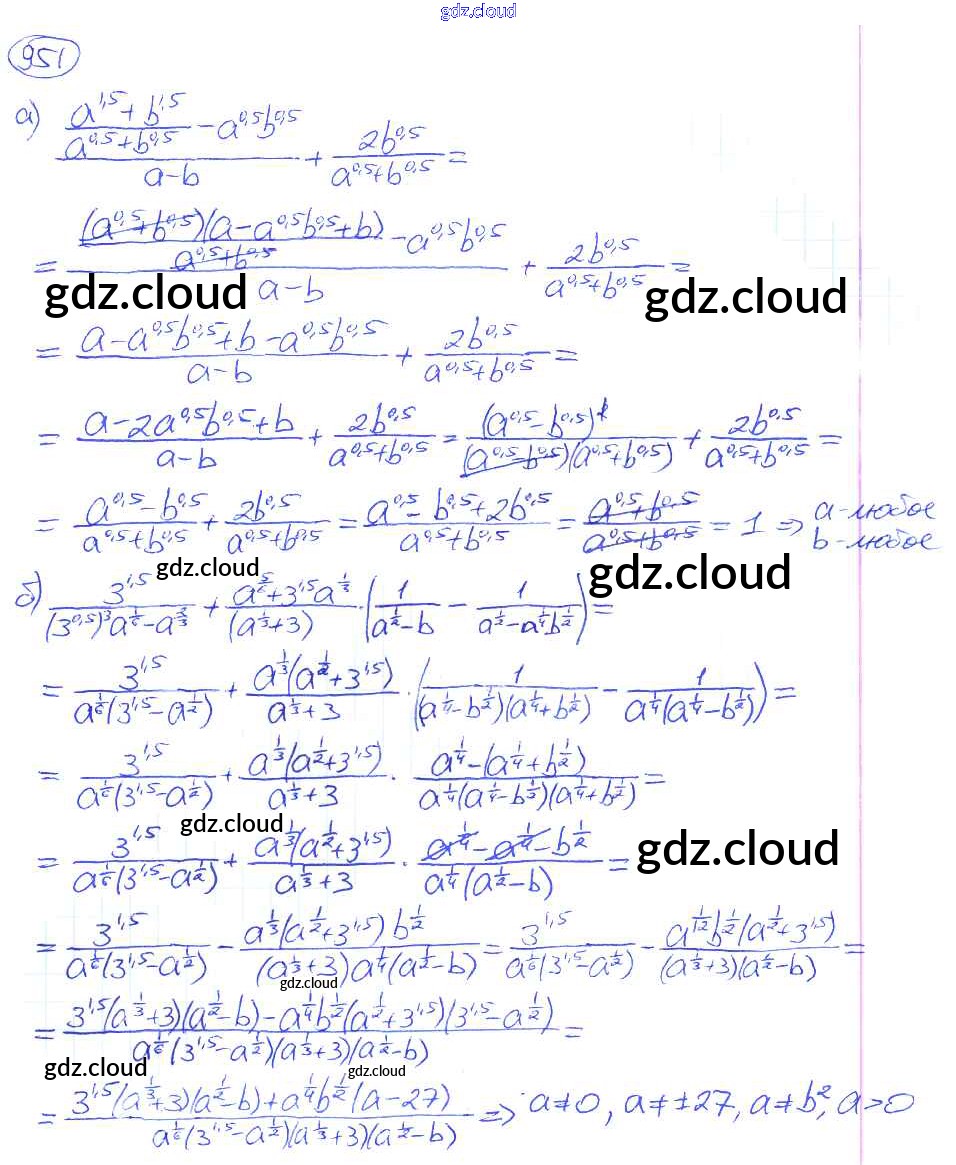 gdz.cloud
951
а) ((a^1,5 + b^1,5)/(a^0,5 + b^0,5) − a^0,5 b^0,5)/(a−b) + 2b^0,5/(a^0,5 + b^0,5) =
= ((a^0,5 + b^0,5)(a − a^0,5 b^0,5 + b)/(a^0,5 + b^0,5) − a^0,5 b^0,5)/(a−b) + 2b^0,5/(a^0,5 + b^0,5) =
gdz.cloud gdz.cloud
= (a − a^0,5 b^0,5 + b − a^0,5 b^0,5)/(a−b) + 2b^0,5/(a^0,5 + b^0,5) =
= (a − 2a^0,5 b^0,5 + b)/(a−b) + 2b^0,5/(a^0,5 + b^0,5) = (a^0,5 − b^0,5)^2/((a^0,5 − b^0,5)(a^0,5 + b^0,5)) + 2b^0,5/(a^0,5 + b^0,5) =
= (a^0,5 − b^0,5)/(a^0,5 + b^0,5) + 2b^0,5/(a^0,5 + b^0,5) = (a^0,5 − b^0,5 + 2b^0,5)/(a^0,5 + b^0,5) = (a^0,5 + b^0,5)/(a^0,5 + b^0,5) = 1 ⇒ a-любое
b-любое
gdz.cloud gdz.cloud
б) 3^1,5/((3^0,5)^3 a^(1/6) − a^(2/3)) + (a^(5/6) + 3^1,5 a^(1/3))/(a^(1/3) + 3) · (1/(a^(1/2) − b) − 1/(a^(1/2) − a^(1/4) b^(1/2))) =
= 3^1,5/(a^(1/6)(3^1,5 − a^(1/2))) + a^(1/3)(a^(1/2) + 3^1,5)/(a^(1/3) + 3) · (1/((a^(1/4) − b^(1/2))(a^(1/4) + b^(1/2))) − 1/(a^(1/4)(a^(1/4) − b^(1/2)))) =
= 3^1,5/(a^(1/6)(3^1,5 − a^(1/2))) + a^(1/3)(a^(1/2) + 3^1,5)/(a^(1/3) + 3) · (a^(1/4) − (a^(1/4) + b^(1/2)))/(a^(1/4)(a^(1/4) − b^(1/2))(a^(1/4) + b^(1/2))) =
gdz.cloud
= 3^1,5/(a^(1/6)(3^1,5 − a^(1/2))) + a^(1/3)(a^(1/2) + 3^1,5)/(a^(1/3) + 3) · (a^(1/4) − a^(1/4) − b^(1/2))/(a^(1/4)(a^(1/2) − b)) =
gdz.cloud
= 3^1,5/(a^(1/6)(3^1,5 − a^(1/2))) − a^(1/3)(a^(1/2) + 3^1,5) b^(1/2)/((a^(1/3) + 3) a^(1/4)(a^(1/2) − b)) = 3^1,5/(a^(1/6)(3^1,5 − a^(1/2))) − a^(1/12) b^(1/2)(a^(1/2) + 3^1,5)/((a^(1/3) + 3)(a^(1/2) − b)) =
gdz.cloud
= (3^1,5(a^(1/3) + 3)(a^(1/2) − b) − a^(1/4) b^(1/2)(a^(1/2) + 3^1,5)(3^1,5 − a^(1/2)))/(a^(1/6)(3^1,5 − a^(1/2))(a^(1/3) + 3)(a^(1/2) − b)) =
gdz.cloud gdz.cloud
= (3^1,5(a^(1/3) + 3)(a^(1/2) − b) + a^(1/4) b^(1/2)(a − 27))/(a^(1/6)(3^1,5 − a^(1/2))(a^(1/3) + 3)(a^(1/2) − b)) ⇒ a≠0, a≠±27, a≠b^2, a>0